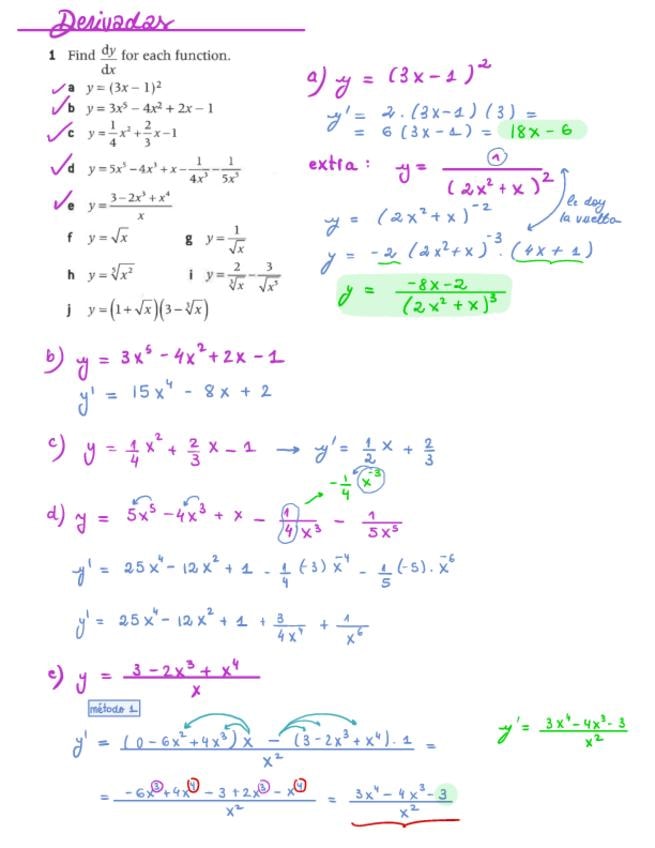 Derivadas
1 Find dy/dx for each function.
a y = (3x − 1)²
b y = 3x⁵ − 4x² + 2x − 1
c y = 1/4 x² + 2/3 x − 1
d y = 5x⁵ − 4x³ + x − 1/(4x³) − 1/(5x⁵)
e y = (3 − 2x³ + x⁴)/x
f y = √x g y = 1/√x
h y = ∛x² i y = 2/∛x − 3/√x⁵
j y = (1 + √x)(3 − ∛x)
a) y = (3x − 1)²
y' = 2 · (3x − 1) (3) =
= 6 (3x − 1) = 18x − 6
extra: y = 1/(2x² + x)²
le doy
la vuelta
y = (2x² + x)⁻²
y = −2 (2x² + x)⁻³ · (4x + 1)
y = (−8x − 2)/(2x² + x)³
b) y = 3x⁵ − 4x² + 2x − 1
y' = 15x⁴ − 8x + 2
c) y = 1/4 x² + 2/3 x − 1 → y' = 1/2 x + 2/3
−1/4 x⁻³
d) y = 5x⁵ − 4x³ + x − 1/(4x³) − 1/(5x⁵)
y' = 25x⁴ − 12x² + 1 − 1/4 (−3) x⁻⁴ − 1/5 (−5) · x⁻⁶
y' = 25x⁴ − 12x² + 1 + 3/(4x⁴) + 1/x⁶
e) y = (3 − 2x³ + x⁴)/x
método 1
y' = ((0 − 6x² + 4x³) x − (3 − 2x³ + x⁴) · 1)/x² =
= (−6x³ + 4x⁴ − 3 + 2x³ − x⁴)/x² = (3x⁴ − 4x³ − 3)/x²
y' = (3x⁴ − 4x³ − 3)/x²